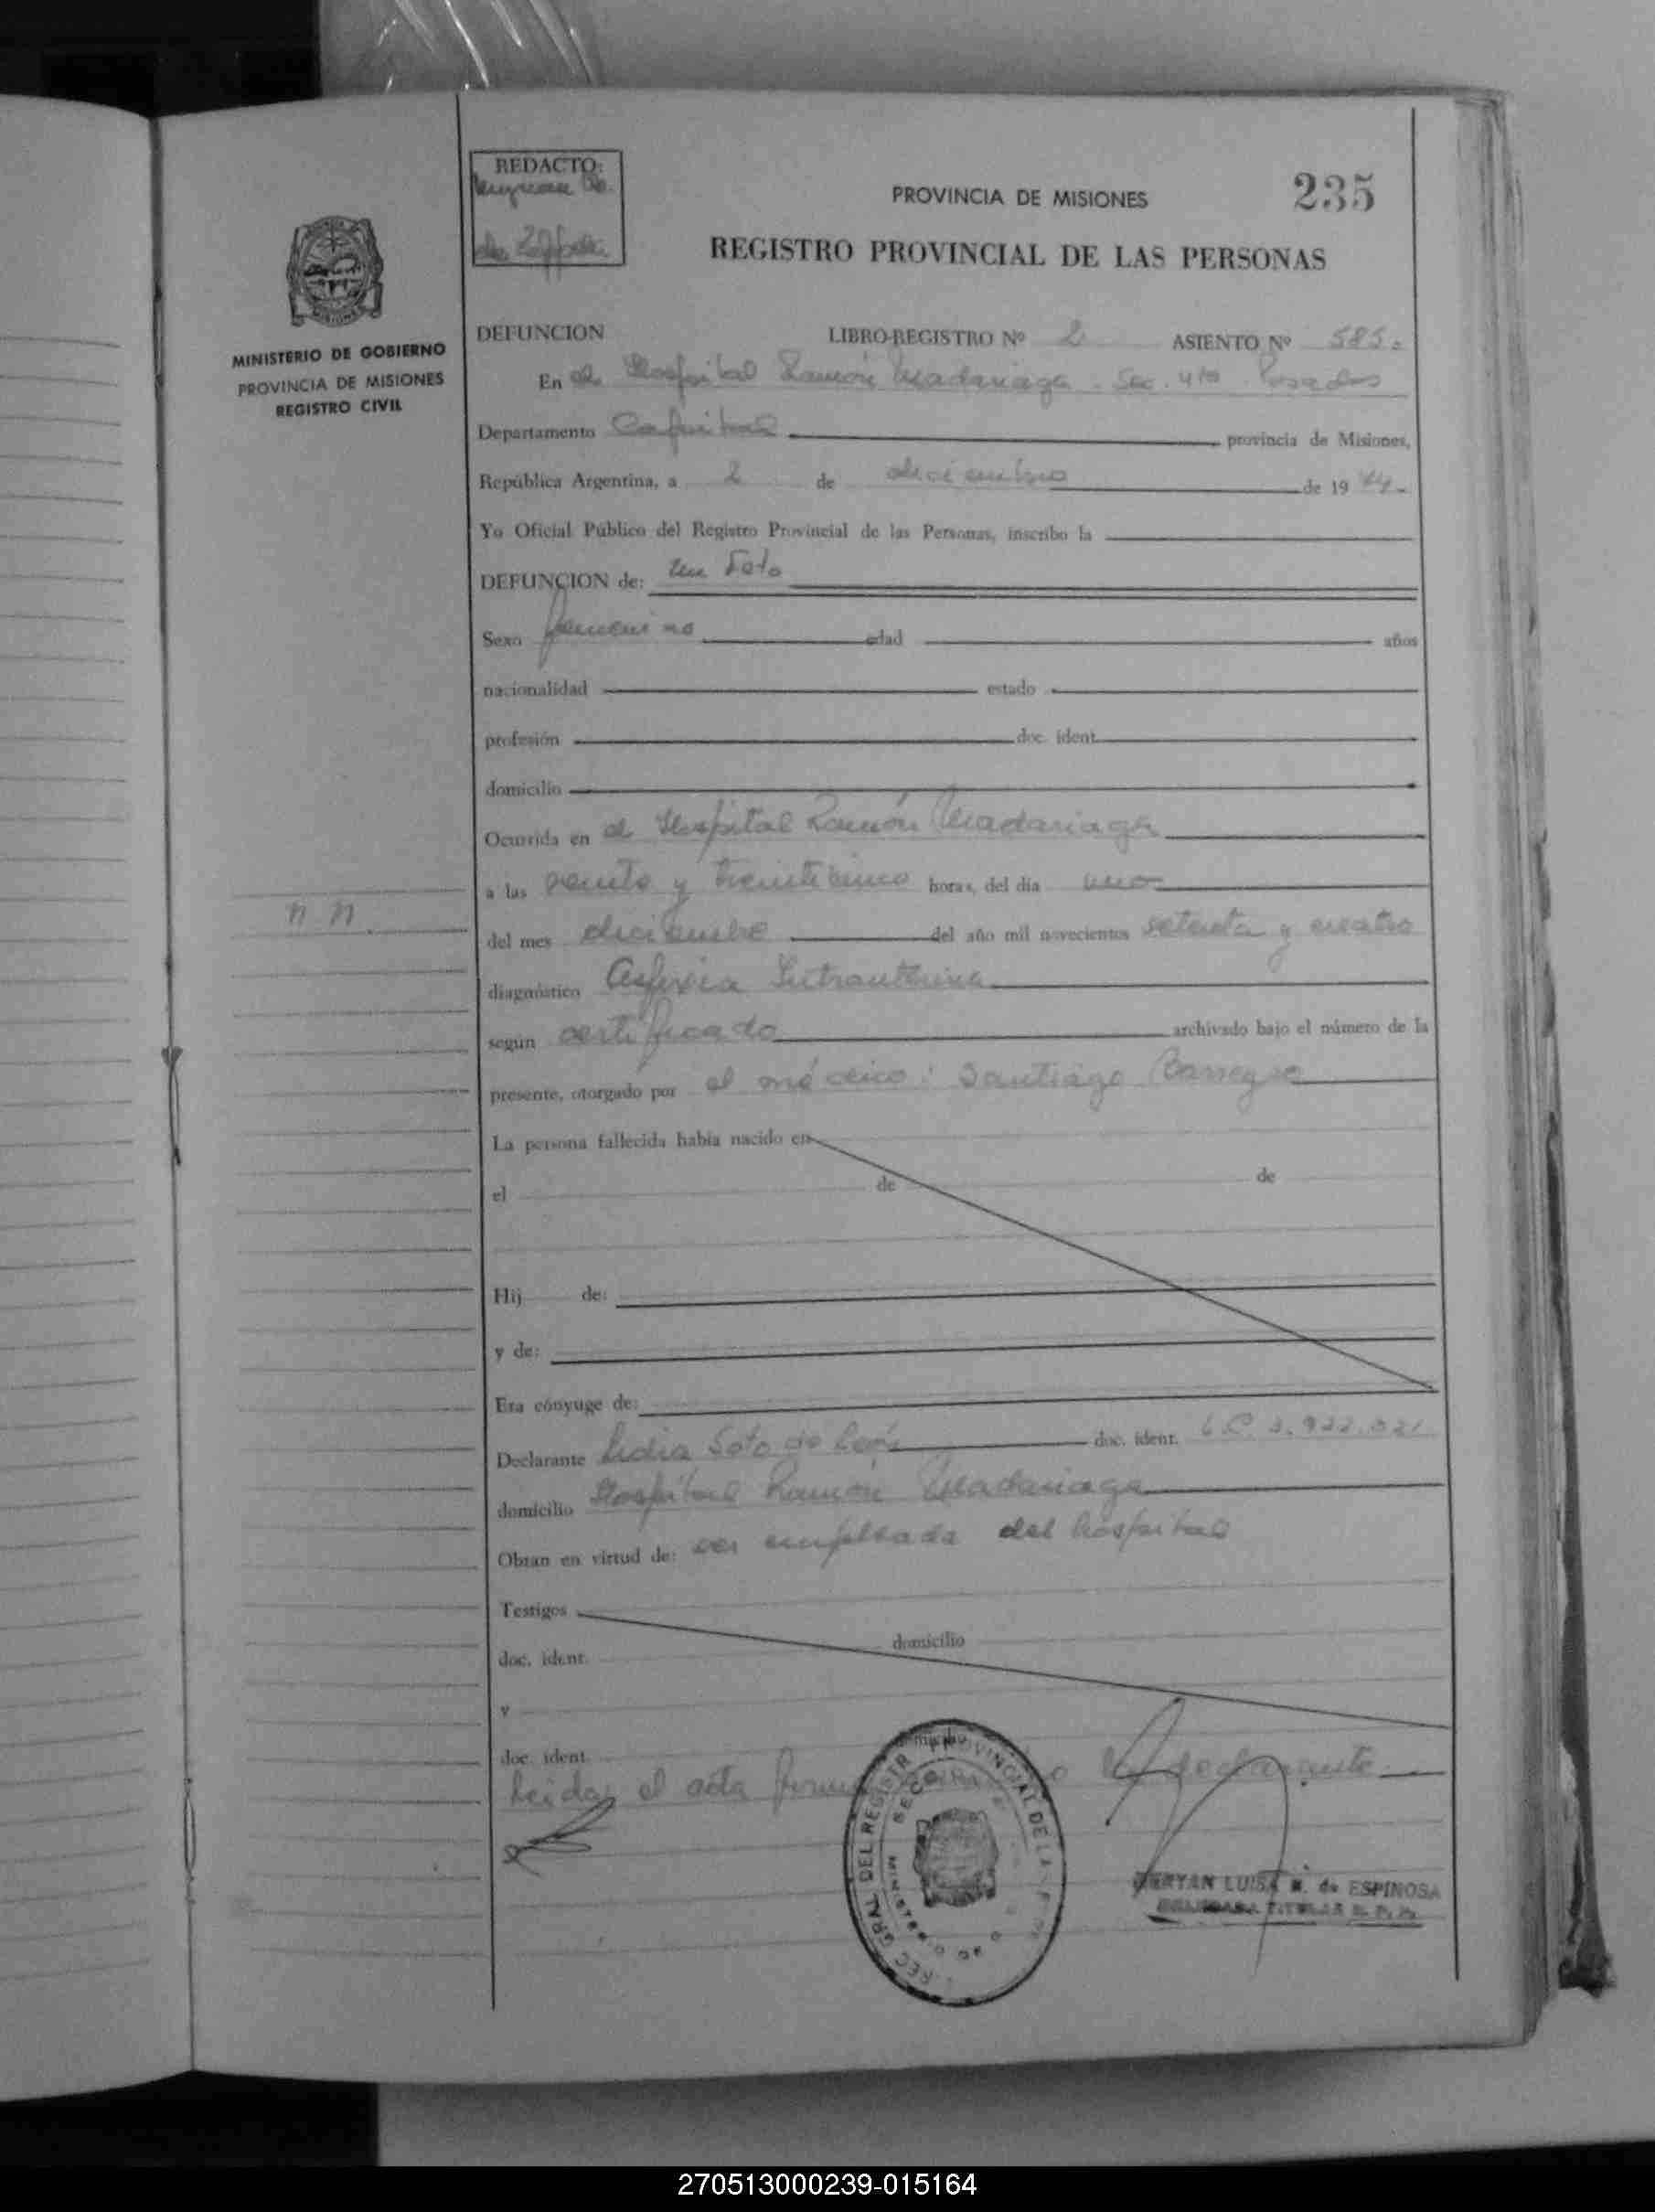 REDACTO:
PROVINCIA DE MISIONES
235
REGISTRO PROVINCIAL DE LAS PERSONAS
MINISTERIO DE GOBIERNO
PROVINCIA DE MISIONES
REGISTRO CIVIL
DEFUNCION LIBRO-REGISTRO Nº 2 ASIENTO Nº 585
En el Hospital Ramón Madariaga. Sec. 4ta. Posadas
Departamento Capital provincia de Misiones,
República Argentina, a 2 de diciembre de 19 74
Yo Oficial Público del Registro Provincial de las Personas, inscribo la
DEFUNCION de: un Feto
Sexo femenino edad años
nacionalidad estado
profesión doc. ident.
domicilio
Ocurrida en el Hospital Ramón Madariaga
a las veinte y treinticinco horas, del día uno
n n
del mes diciembre del año mil novecientos setenta y cuatro
diagnóstico Asfixia Intrauterina
según certificado archivado bajo el número de la
presente, otorgado por el médico: Santiago Barreyro
La persona fallecida había nacido en
el de de
Hij de:
y de:
Era cónyuge de:
Declarante Lidia Soto de doc. ident. L.C. 3.922.021
domicilio Hospital Ramón Madariaga
Obran en virtud de: ser empleada del hospital
Testigos
doc. ident. domicilio
y
doc. ident. domicilio
Leida el acta la declarante
LUISA de ESPINOSA
270513000239-015164